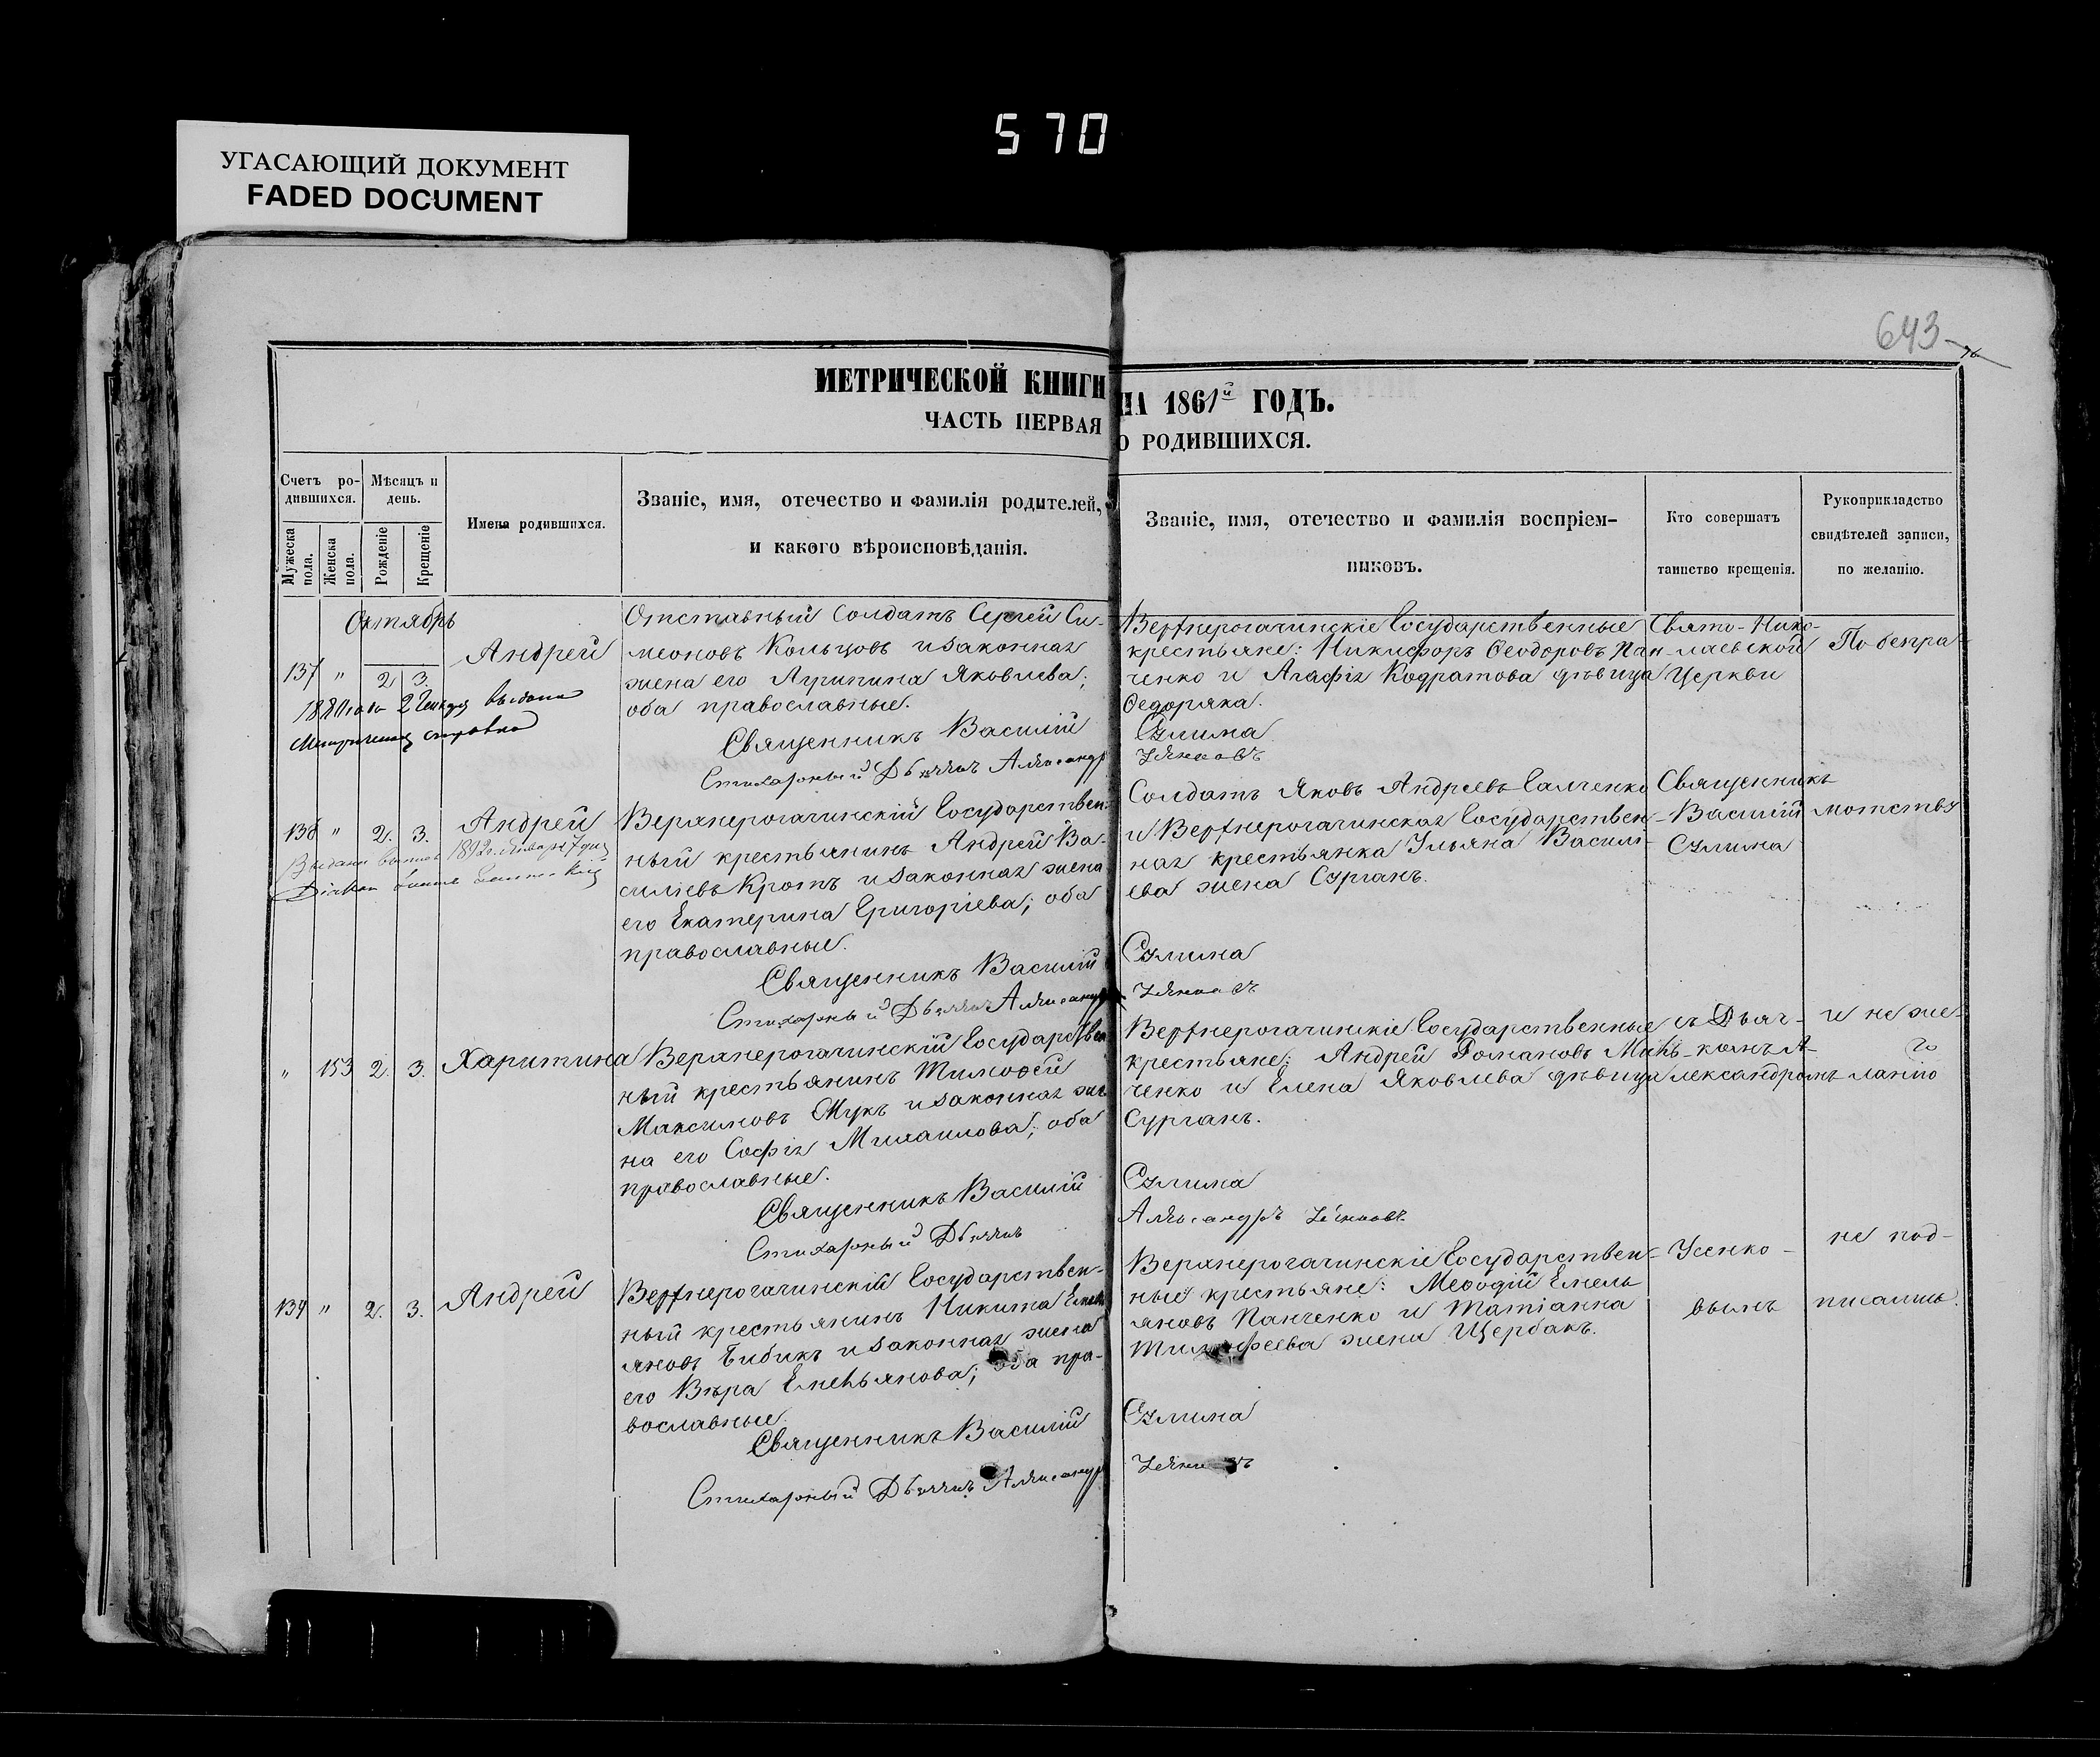 570
УГАСАЮЩИЙ ДОКУМЕНТ
FADED DOCUMENT
643
МЕТРИЧЕСКОЙ КНИГИ НА 1861й ГОДЪ.
ЧАСТЬ ПЕРВАЯ О РОДИВШИХСЯ.
Счетъ ро-
дившихся.
Мѣсяцъ и
день.
Мужеска
пола.
Женска
пола.
Рожденіе
Крещеніе
Имена родившихся.
Званіе, имя, отечество и фамилія родителей,
и какого вѣроисповѣданія.
Званіе, имя, отечество и фамилія воспріем-
никовъ.
Кто совершатъ
таинство крещенія.
Рукоприкладство
свидѣтелей записи,
по желанію.
Октябрь
137 " 2 3. Андрей
выдана
Отставный Солдатъ Сергей Си-
меоновъ Кольцовъ и законная
жена его Агрипина Яковлева;
оба православные.
Священникъ Василій
Стихарный Дьячекъ Александръ
Верхнерогачинскіе Государственные
крестьяне: Никифоръ Ѳеодоровъ Пан-
ченко и Агафія Кодратова дѣвица
Ѳедоряка.
Сулима
Усенковъ
138 " 2. 3. Андрей
1892г. Января 7 дня
Верхнерогачинскій Государствен-
ный крестьянинъ Андрей Ва-
силіевъ Кротъ и законная жена
его Екатерина Григоріева; оба
православные.
Священникъ Василій
Стихарный Дьячекъ Александръ
Солдатъ Яковъ Андреевъ Салченко
и Верхнерогачинская Государствен-
ная крестьянка Ульяна Васили-
ева жена Сурганъ.
Сулима
Усенковъ
" 153 2. 3. Харитина
Верхнерогачинскій Государствен
ный крестьянинъ Тимоѳей
Максимовъ Жукъ и законная же
на его Софія Михаилова; оба
православные.
Священникъ Василій
Стихарный Дьячекъ
Верхнерогачинскіе Государственные
крестьяне: Андрей Романовъ Минь-
ченко и Елена Яковлева дѣвица
Сурганъ.
Сулима
Александръ Усенковъ
139 " 2. 3. Андрей
Верхнерогачинскій Государствен-
ный крестьянинъ Никита Емель
яновъ Бибикъ и законная жена
его Вѣра Емельянова; оба пра-
вославные.
Священникъ Василій
Стихарный Дьячекъ Александръ
Верхнерогачинскіе Государствен-
ные крестьяне: Меѳодій Емель
яновъ Панченко и Татіанна
Тимофеева жена Щербакъ.
Сулима
Усенковъ
Свято-Нико-
лаевской
Церкви
Священникъ
Василій
Сулима
съ Дьяч-
комъ А-
лександромъ
Усенко-
вымъ
По безгра-
мотству
и не же-
ланію
не под-
писались.